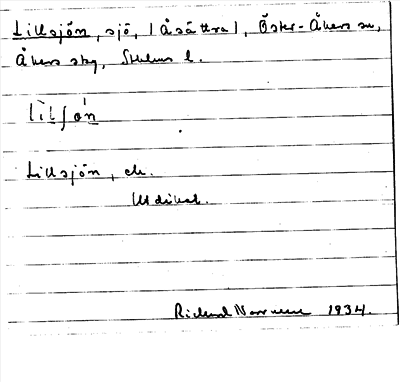 Lillsjön, sjö, (Åsättra), Öster-Åkers sn,
Åkers skg, Sthlms l.
lìlʃǿn
Lillsjön, ek.
Utdikad.
Rickard Norrmene 1934.